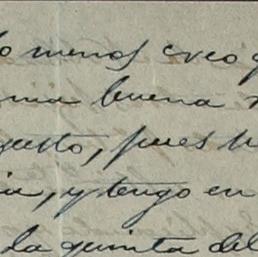 lo menos creo q
una buena
gusto, pues h
ia, y tengo en
la quinta del